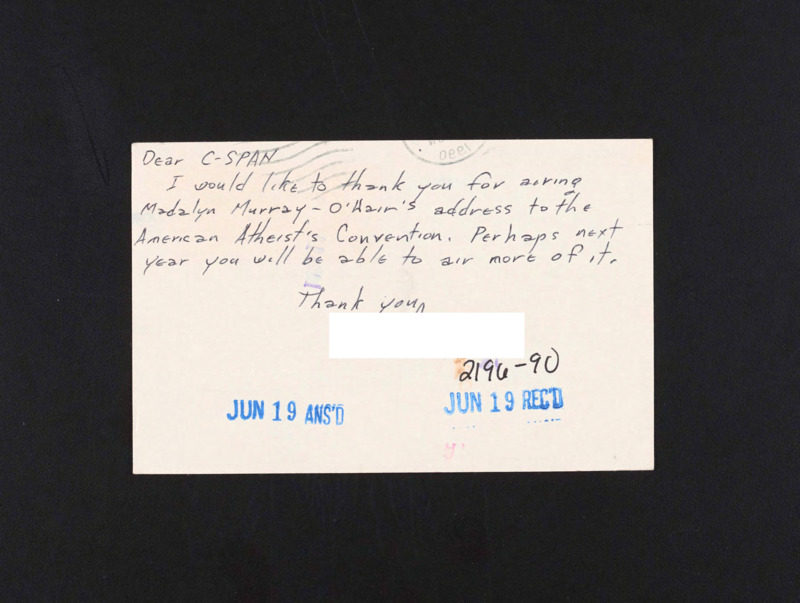 Dear C-SPAN
I would like to thank you for airing
Madalyn Murray-O'Hair's address to the
American Atheist's Convention. Perhaps next
year you will be able to air more of it.
Thank you,
2196-90
JUN 19 ANS'D
JUN 19 REC'D
1990